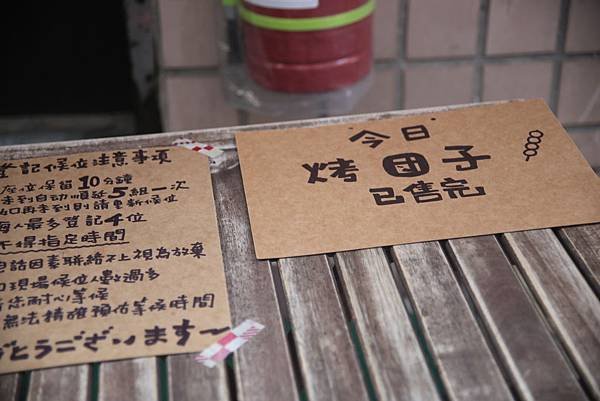 登記候位注意事項
座位保留10分鐘
未到自动順延5組一次
如再未到則請重新候位
每人最多登記4位
不得指定時間
電話因素聯絡不上視為放棄
如現場候位人數過多
請您耐心等候
無法精確預估等候時間
がとうございます~
今日
烤団子
已售完